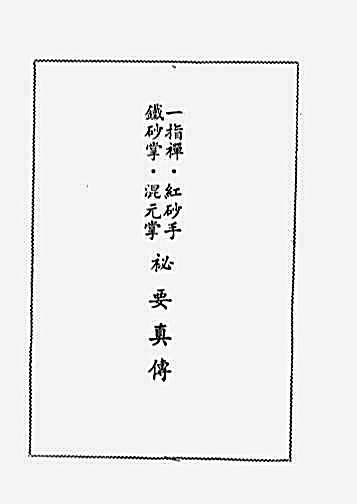 一指禪·紅砂手
鐵砂掌·混元掌
祕要真傳